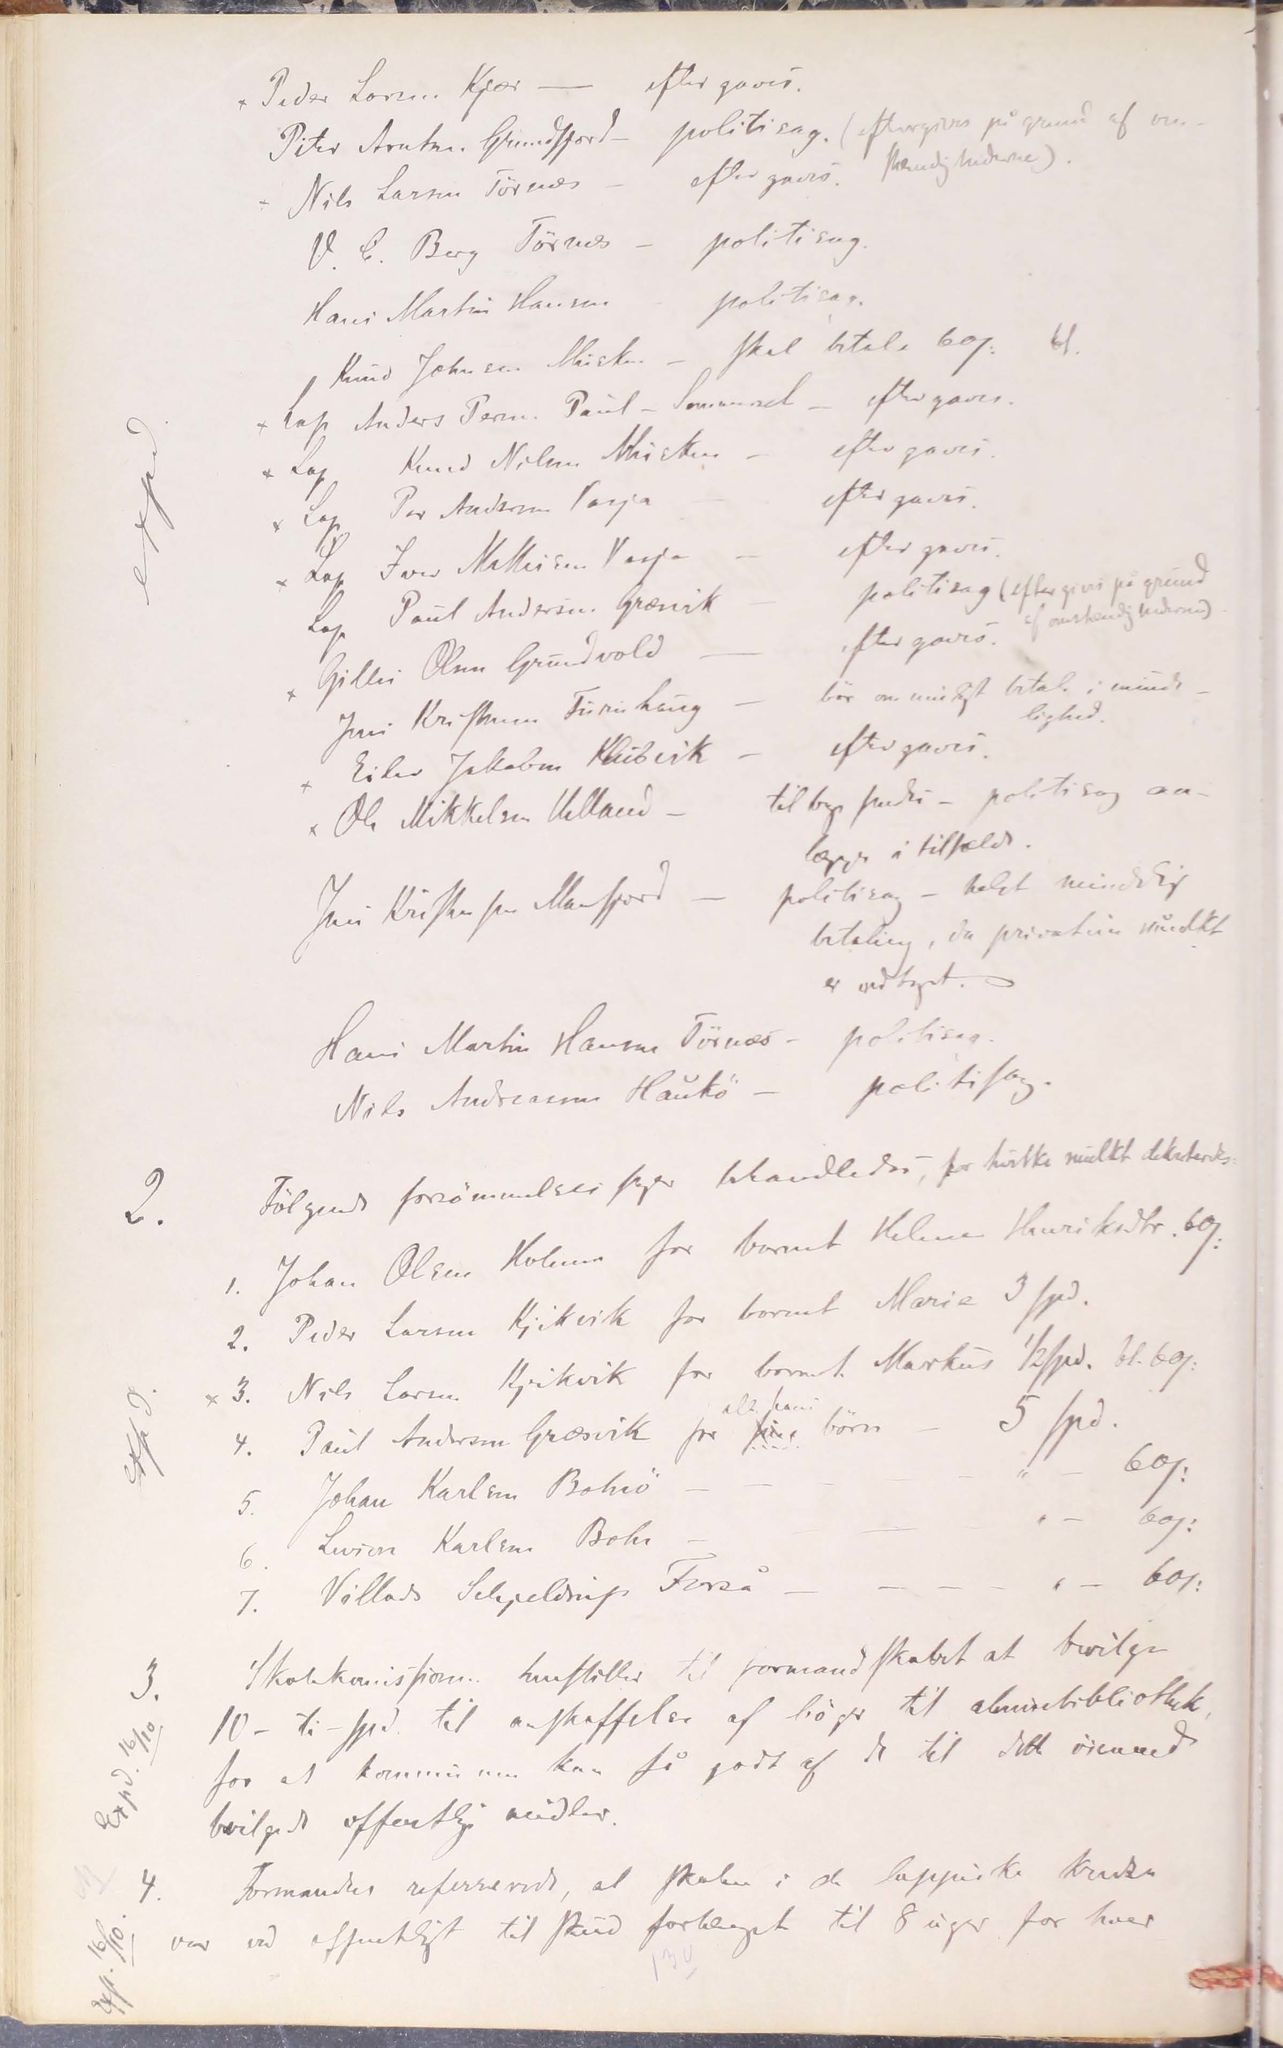 × Peder Larsen Kjær — eftergaves.
Peter Arntsen Grundfjord — politisag. (eftergives på grund af om-
stændighederne).
× Nils Larsen Törnæs — eftergaves.
V. C. Berg Törnæs — politisag.
Hans Martin Hansen — politisag.
Knud Johnsen Musken — skal betale 60 s: bt.
× Lap Anders Persen Paul-Sommersel — eftergaves.
× Lap Knud Nilsen Musken — eftergaves.
× Lap Per Andersen Vasja — eftergaves.
× Lap Iver Mathisen Vasja — eftergaves.
Lap Paul Andersen Græsvik — politisag (eftergives på grund
af omstændighederne).
× Gillis Olsen Grundvold — eftergaves.
expd.
Jens Kristensen Furuhaug — bör om muligt betale i minde-
lighed.
× Eiler Jakobsen Klubvik — eftergaves.
× Ole Mikkelsen Helland — politisag an-
lægges i tilfælde.
Jens Kristensen Mansfjord — politisag — helst mindelig
betaling, da privatim mulkt
er vedtaget.
Hans Martin Hansen Törnæs — politisag.
Nils Andreassen Haukö — politisag.
2. Fölgende forsömmelsessager behandledes, for hvilke mulkt dekreteredes:
1. Johan Olsen Holmen for barnet Helmine Henriksdtr. 60 s:
2. Peder Larsen Kjikvik for barnet Marie 3 spd.
× 3. Nils Larsen Kjikvik for barnet Markus 1/2 spd. bt. 60 s:
4. Paul Andersen Græsvik for alle hans börn — 5 spd.
expd.
5. Johan Karlsen Bohnö — — — " — 60 s:
6. Karlsen Bohn — — — " — 60 s:
7. Villads Schjeldrup Forså — — — " — 60 s:
3. Skolekomissionen henstiller til formandskabet at bevilge
10 — ti — spd. til anskaffelse af böger til almuebibliothek,
for at kommunen kan få godt af de til dette öiemed
bevilgede offentlige midler.
Expd. 16/10
4. Formanden refererede, at skolen i de lappiske kredse
var ved offentligt tilskud forlænget til 8 uger for hver
Exp. 16/10.
130